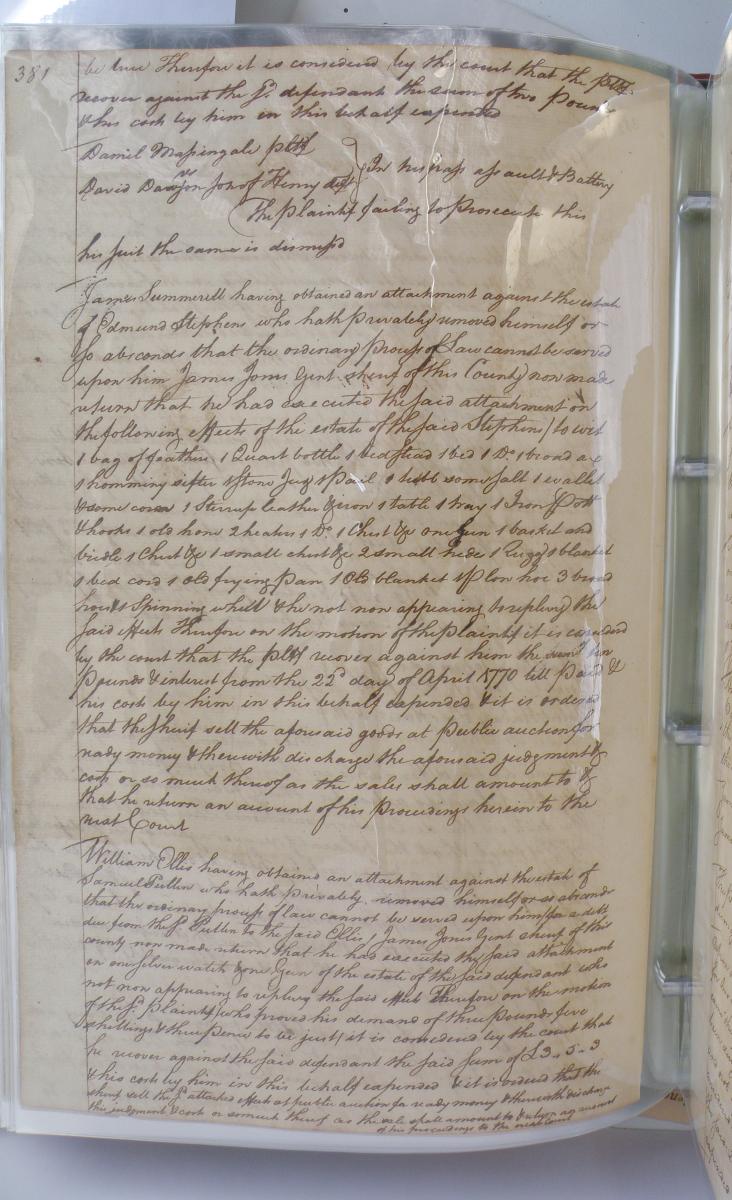 381
be true Therefore it is considered by the court that the pltf
recover against the sd. defendant the sum of two pounds
& his costs by him in this behalf expended
Daniel Massingale pltf
David Dawson son of Henry deft
In trespass assault & Battery
The plaintif failing to Prosecute this
his suit the same is dismissd
James Summerell having obtained an attachment against the estate
of Edmund Stephens who hath Privately removed himself or
so absconds that the ordinary Process of Law cannot be served
upon him James Jones Gent sherif of this County now made
return that he had executed the said attachment on
the following effects of the estate of the said Stephens / to wit
1 bag of feathers 1 Quart bottle 1 bedstead 1 bed 1 Do 1 broad axe
1 homminy sifter 1 stone Jug 1 Pail 1 tubb some salt 1 wallet
& some corn 1 Stirrup leather & iron 1 table 1 tray 1 Iron Pott
& hooks 1 old hone 2 heaters 1 Do 1 Chest &c one Gun 1 basket and
bridle 1 Chest &c 1 small chest &c 2 small hides 1 Rugg 1 blanket
1 bed cord 1 old frying Pan 1 Old blanket 1 Plow hoe 3 broad
hoes & 1 Spinning whell & he not now appearing to replevy the
said effects Therefore on the motion of the plaintif it is considered
by the court that the pltf recover against him the ten
Pounds & interest from the 22d day of April 1770 till Paid &
his costs by him in this behalf expended & it is ordered
that the sherif sell the aforesaid goods at Public auction for
ready money & therewith discharge the aforesaid judgment &
costs or so much thereof as the sales shall amount to &
that he return an account of his Proceedings herein to the
next Court
William Ellis having obtained an attachment against the estate of
Samuel Pullen who hath privately removed himself or so absconds
that the ordinary process of law cannot be served upon him for a debt
due from the sd. Pullen to the said Ellis, James Jones Gent sherif of this
county now made return that he has executed the said attachment
on one silver watch & one Gun of the estate of the said defendant who
not now appearing to replevy the said effects Therefore on the motion
of the sd. plaintif (who proved his demand of three pounds five
shillings & three pence to be just) it is considered by the court that
he recover against the said defendant the said sum of £3..5..3
& his costs by him in this behalf expended & it is ordered that the
sherif sell the sd. attached effects at public auction for ready money & therewith discharge
this judgment & costs or so much thereof as the sale shall amount to & return an account
of his proceedings to the next court